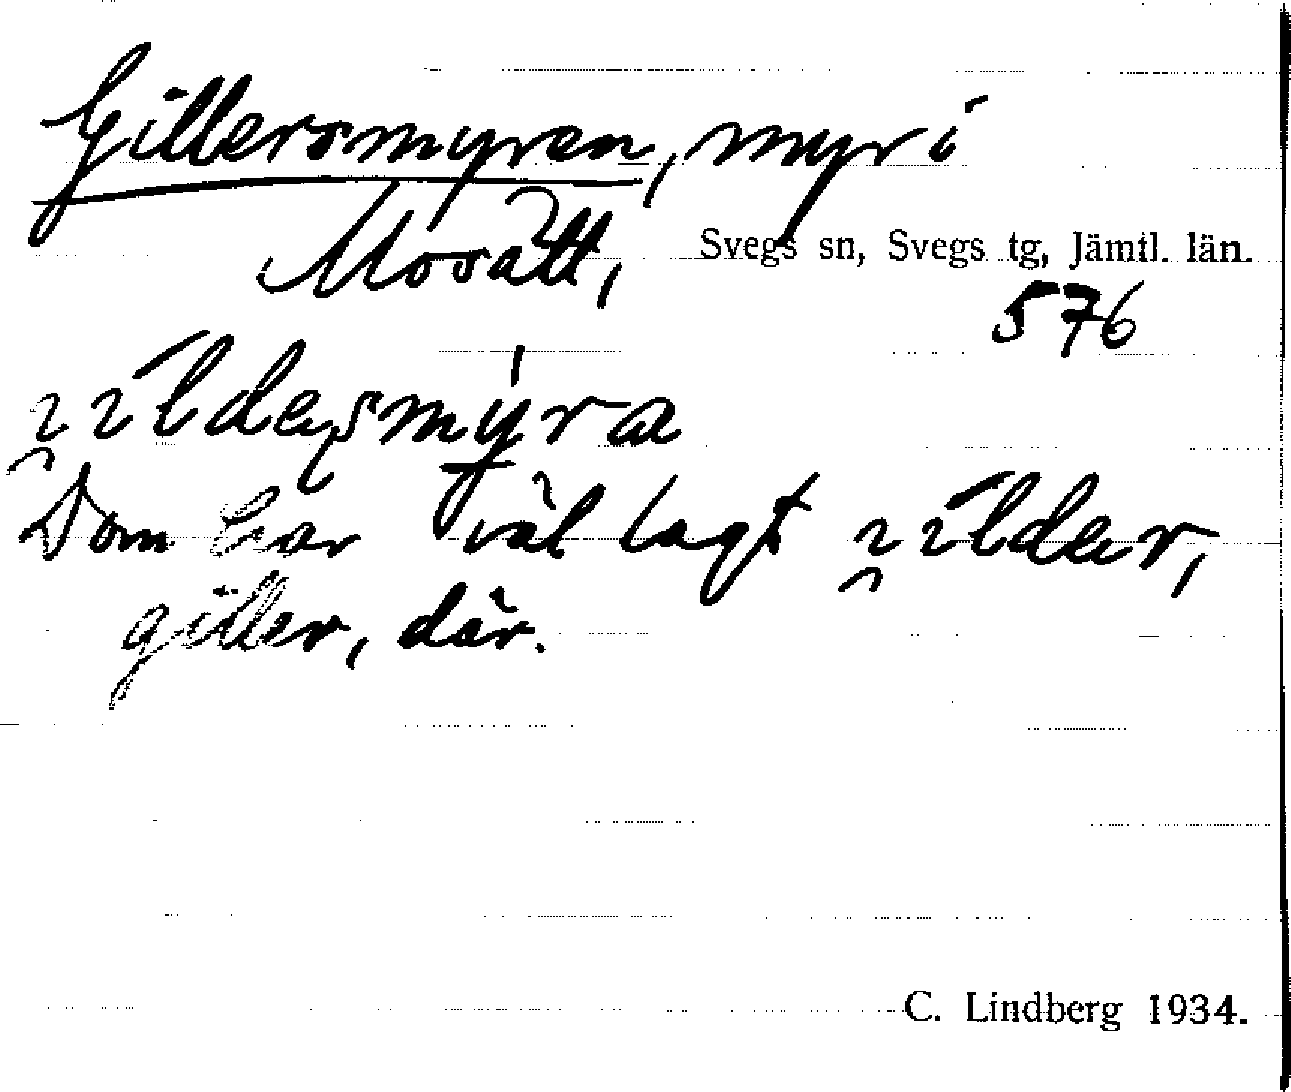 Gillersmyren, myr i
Mosätt, Svegs sn, Svegs tg, Jämtl. län.
576
Dom har väl lagt
giller, där.
C. Lindberg 1934.